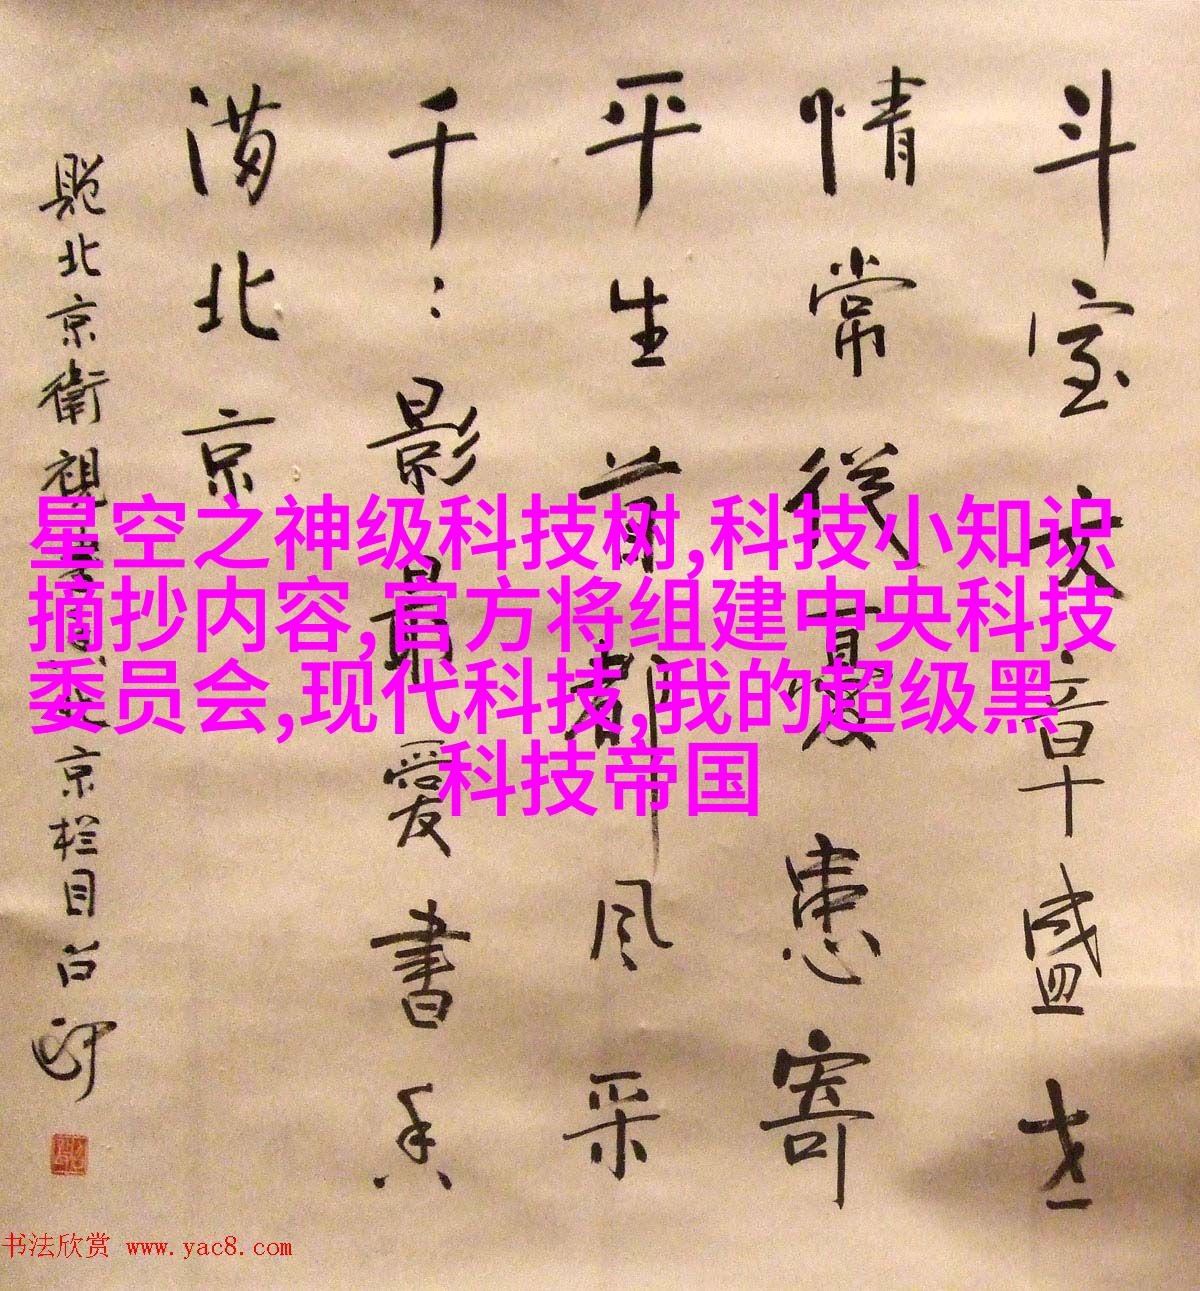 斗室文章盛世
情常從憂患寄
平生首都风采
千〻影最愛書香
满北京
題北京衛視京栏目
星空之神级科技树,科技小知识
摘抄内容,官方将组建中央科技
委员会,现代科技,我的超级黑
科技帝国
书法欣赏 www.yac8.com